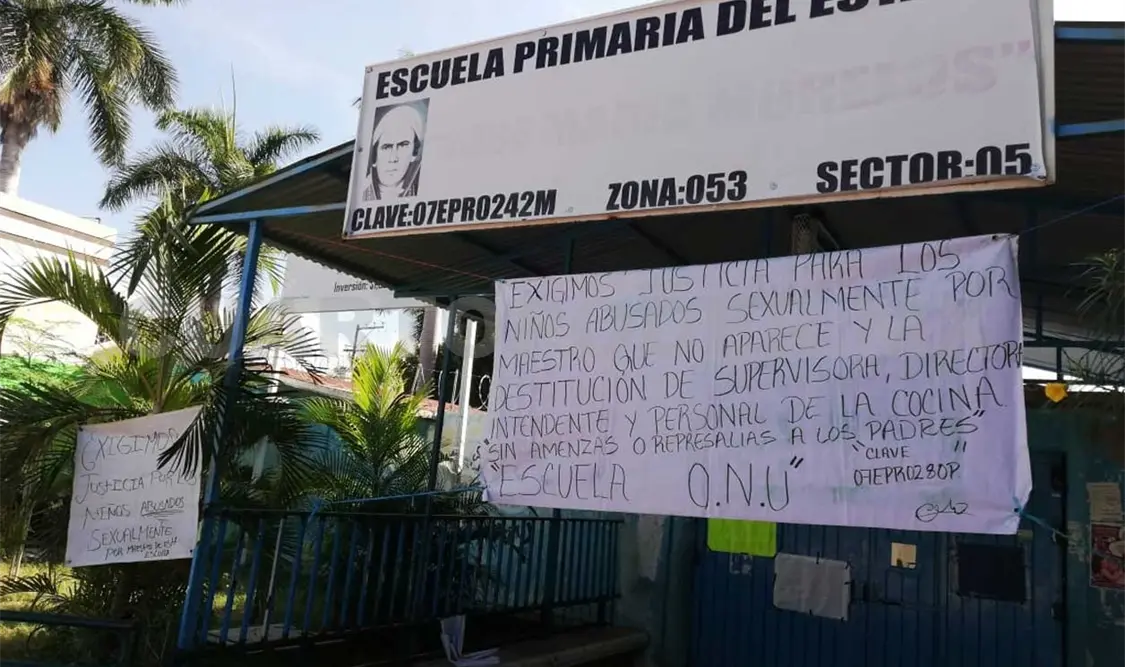 ESCUELA PRIMARIA DEL
CLAVE:07EPR0242M
ZONA:053
SECTOR:05
Inversión:
EXIGIMOS JUSTICIA PARA LOS
NIÑOS ABUSADOS SEXUALMENTE POR
MAESTRO QUE NO APARECE Y LA
DESTITUCIÓN DE SUPERVISORA, DIRECTORA
INTENDENTE Y PERSONAL DE LA COCINA
"SIN AMENZAS O REPRESALIAS A LOS PADRES"
"ESCUELA O.N.U"
"CLAVE "
07EPR0280P
EXIGIMOS
JUSTICIA POR LOS
NIÑOS ABUSADOS
SEXUALMENTE
POR MAESTRO DE ESTA
ESCUELA